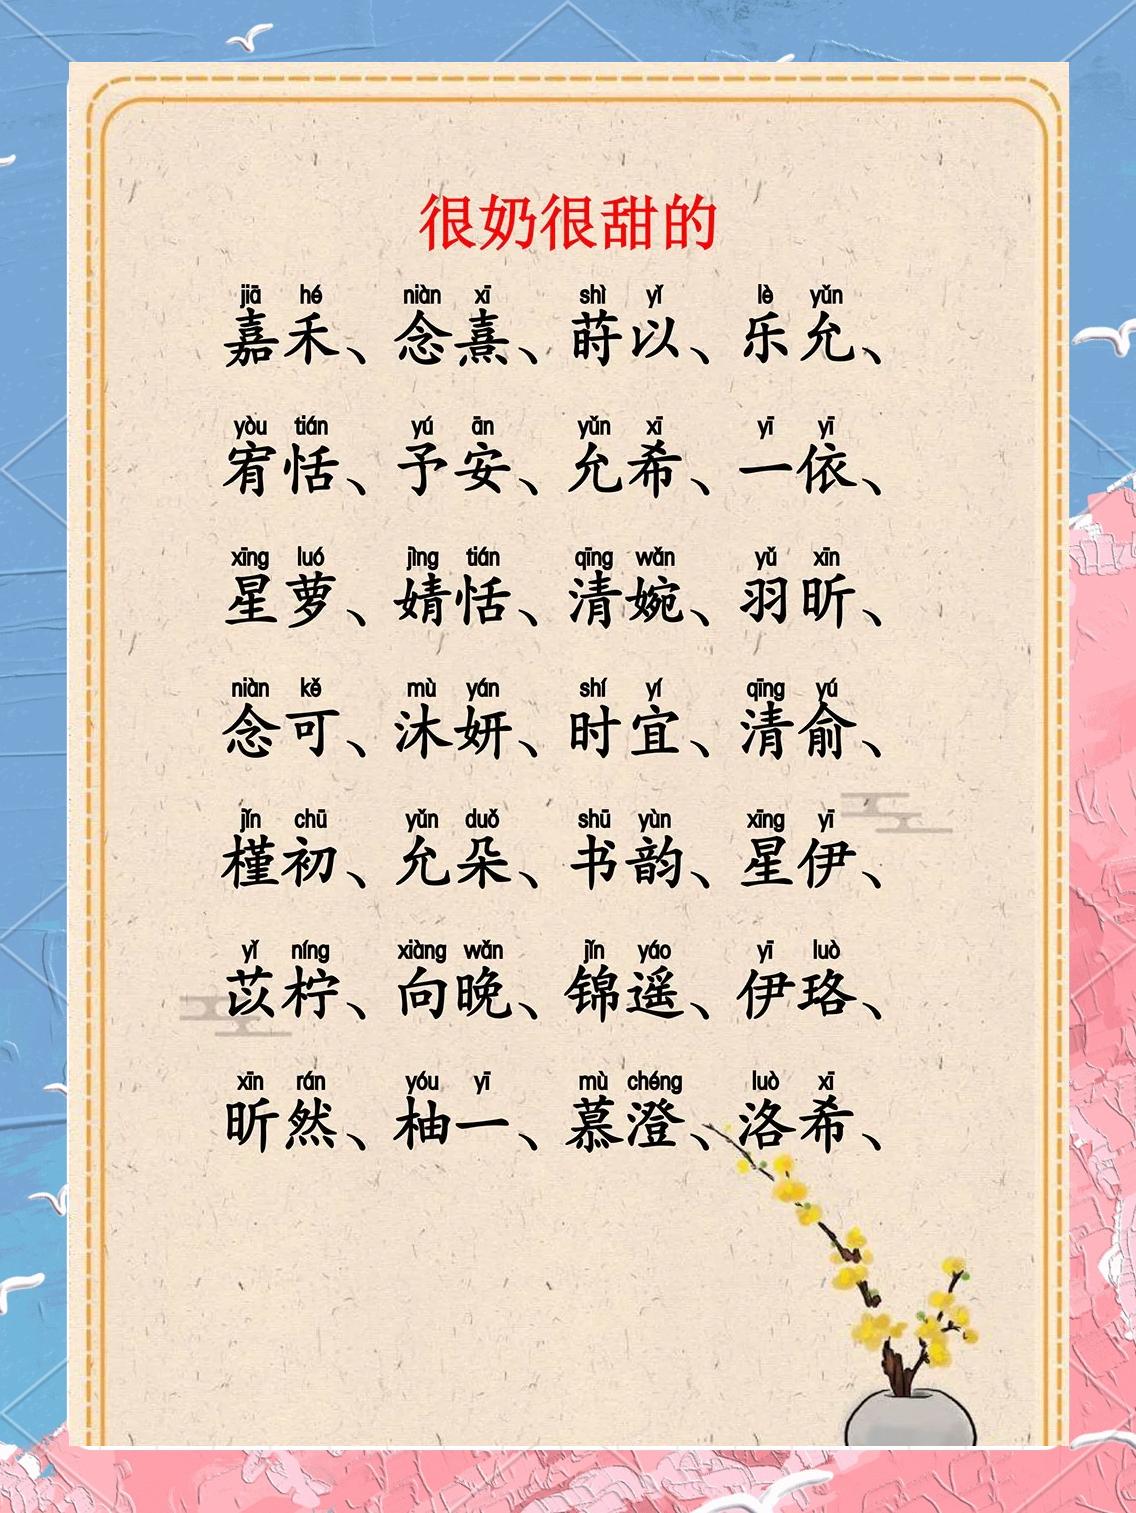 很奶很甜的
jiā hé niàn xī shì yǐ lè yǔn
嘉禾、念熹、莳以、乐允、
yòu tián yú ān yǔn xī yī yī
宥恬、予安、允希、一依、
xīng luó jìng tián qīng wǎn yǔ xīn
星萝、婧恬、清婉、羽昕、
niàn kě mù yán shí yí qīng yú
念可、沐妍、时宜、清俞、
jǐn chū yǔn duǒ shū yùn xīng yī
槿初、允朵、书韵、星伊、
yǐ níng xiàng wǎn jǐn yáo yī luò
苡柠、向晚、锦遥、伊珞、
xīn rán yóu yī mù chéng luò xī
昕然、柚一、慕澄、洛希、